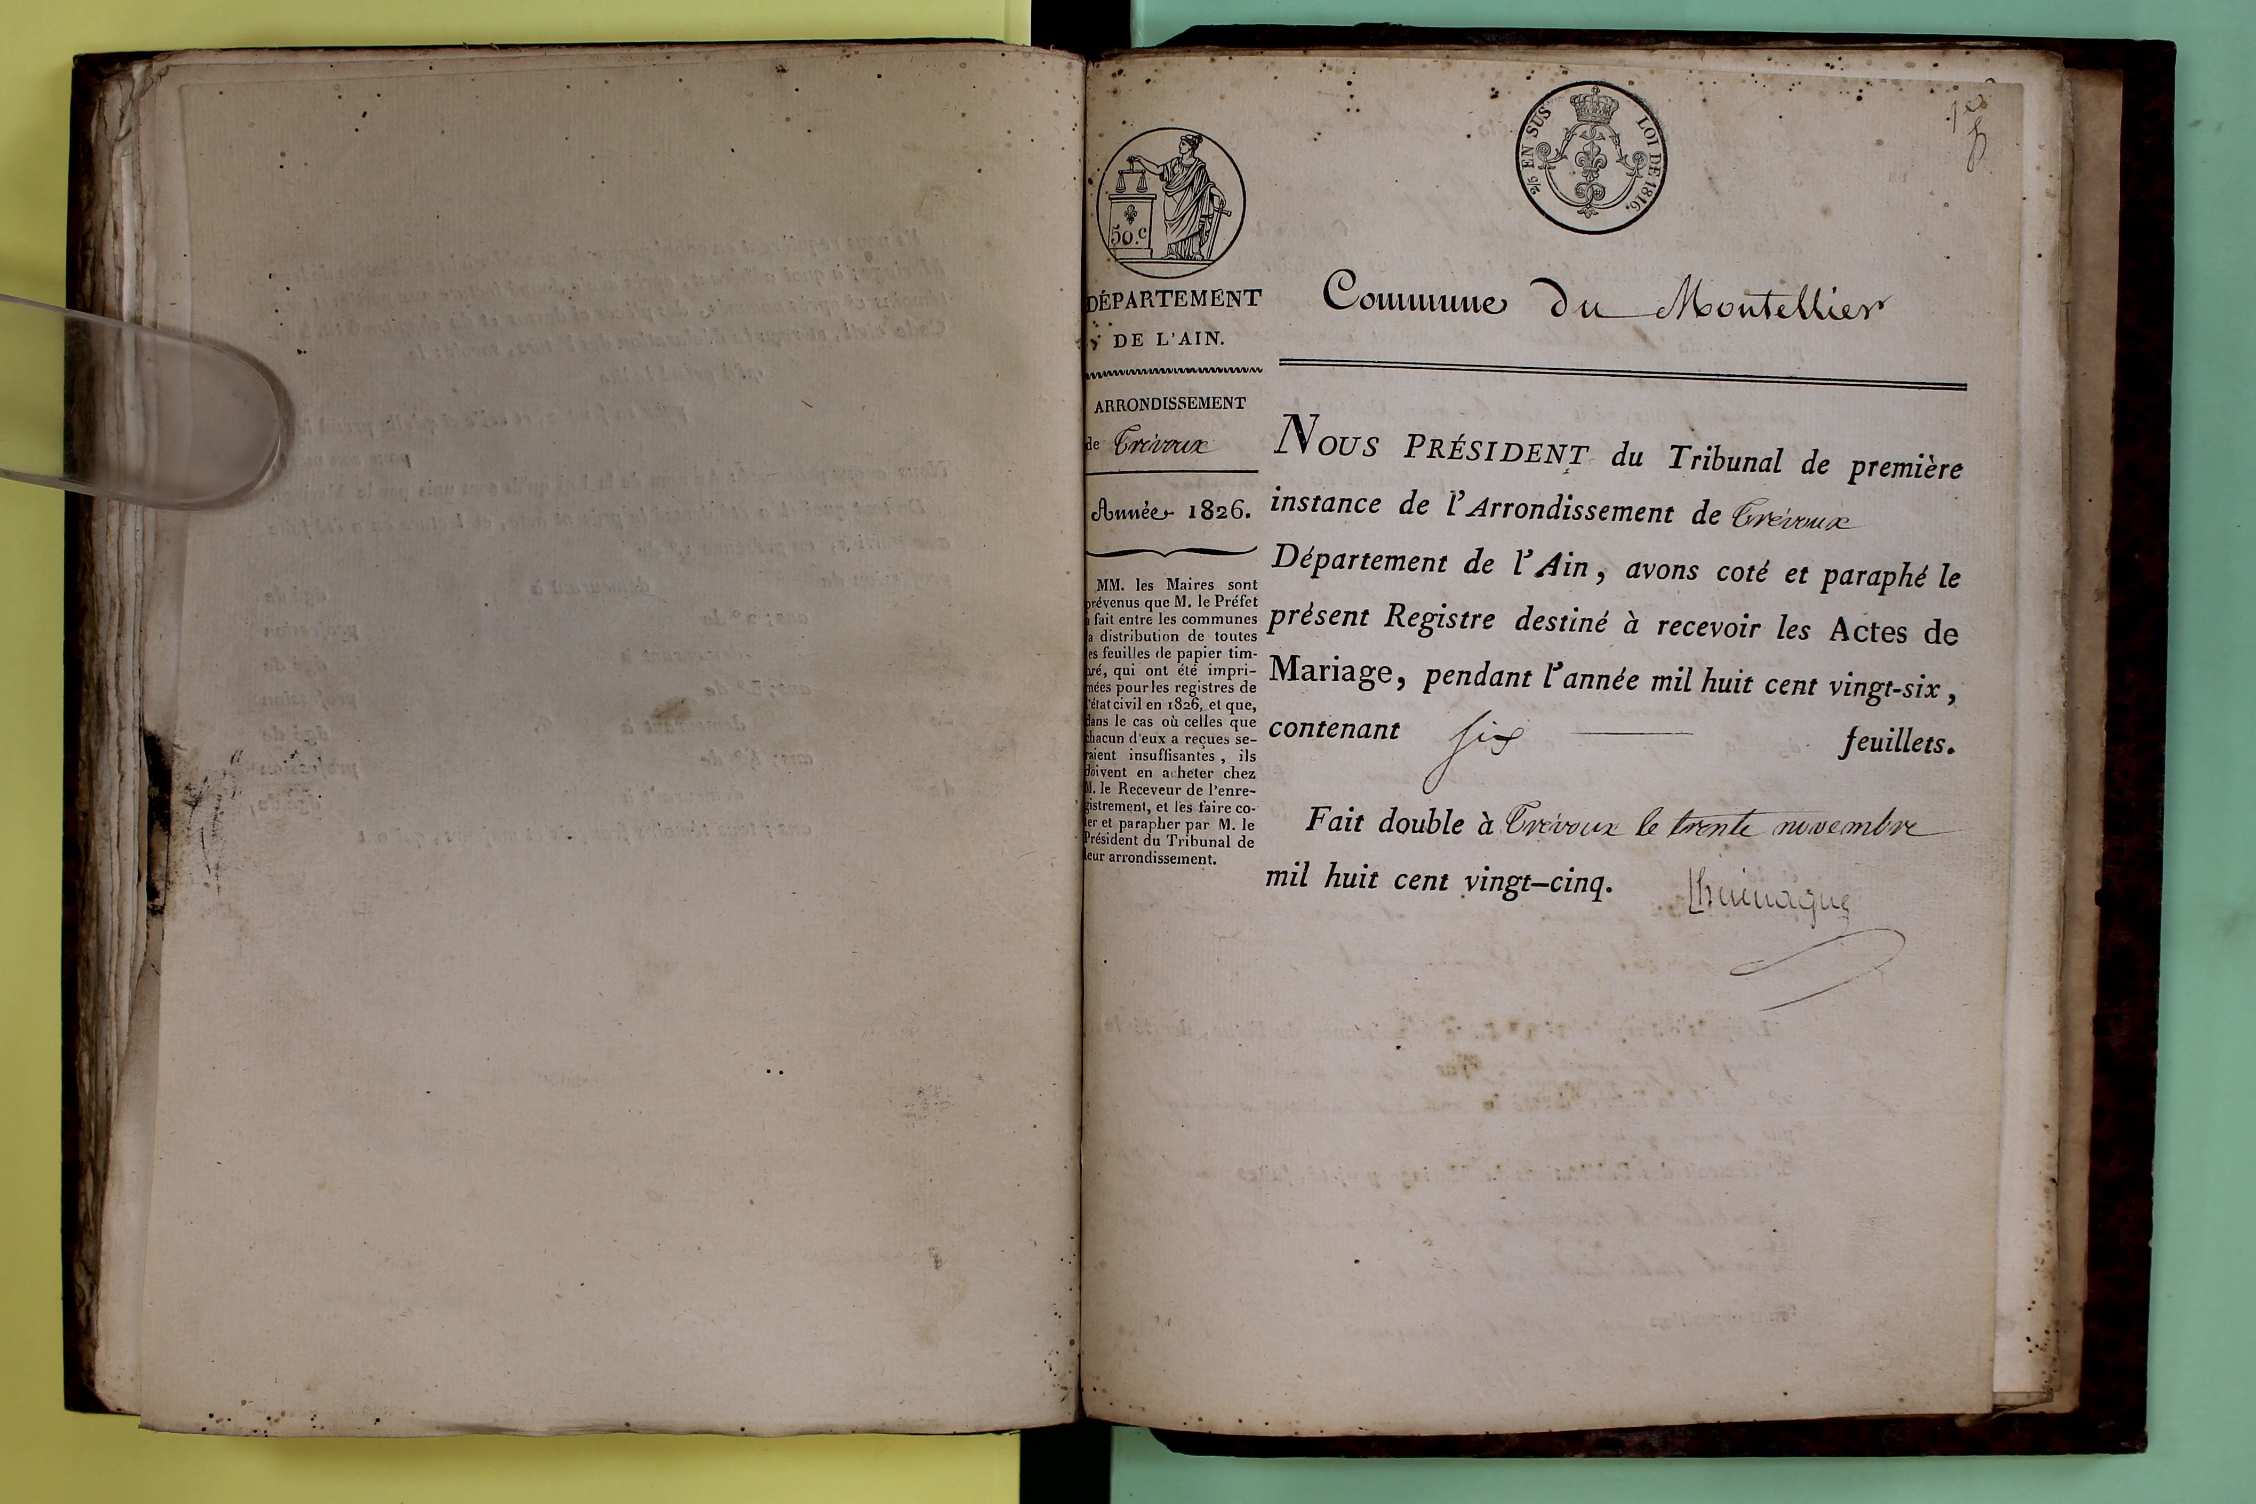 50.c
2/5 EN SUS LOI DE 1816.
DÉPARTEMENT
DE L'AIN.
ARRONDISSEMENT
de Trévoux
Année 1826.
MM. les Maires sont
prévenus que M. le Préfet
a fait entre les communes
la distribution de toutes
les feuilles de papier tim-
bré, qui ont été impri-
mées pour les registres de
l'état civil en 1826, et que,
dans le cas où celles que
chacun d'eux a reçues se-
raient insuffisantes, ils
doivent en acheter chez
M. le Receveur de l'enre-
gistrement, et les faire co-
ter et parapher par M. le
Président du Tribunal de
leur arrondissement.
Commune du Montellier
NOUS PRÉSIDENT du Tribunal de première
instance de l'Arrondissement de Trévoux
Département de l'Ain, avons coté et paraphé le
présent Registre destiné à recevoir les Actes de
Mariage, pendant l'année mil huit cent vingt-six,
contenant six feuillets.
Fait double à Trévoux le trente novembre
mil huit cent vingt-cinq.